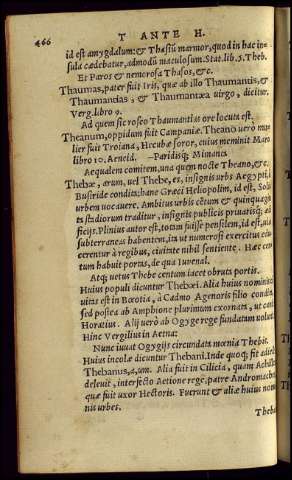 466
T ANTE H.
id est amygdalum: & Thasiũ marmor, quod in hac in-
sula cædebatur, admodũ maculosum. Stat. lib. 5. Theb.
Et Paros & nemorosa Thasos, &c.
Thaumas, pater fuit Iris, quæ ab illo Thaumantis, &
Thaumandas, & Thaumantæa virgo, dicitur.
Verg. libro 9.
Ad quem sic roseo Thaumantis ore locuta est.
Theanum, oppidum fuit Campaniæ. Theano vero mu-
lier fuit Troiana, Hecubæ soror, cuius meminit Maro
libro 10. Aeneid. —Paridisq; Mimanta
Aequalem comitem, una quem nocte Theano, &c.
Thebæ, arum, vel Thebe, es, insignis urbs Aegypti, à
Busiride condita: hanc Græci Heliopolim, id est, Solis
urbem vocavere. Ambitus urbis cẽtum & quinquagin
ta stadiorum traditur, insignis publicis privatisq; ædi
ficijs. Plinius autor est, totam fuisse pensilem, id est, via
subterraneas habentem, ita ut numerosi exercitus du-
cerentur à regibus, civitate nihil sentiente. Hæc cen
tum habuit portas, de qua Iuvenal.
Atq; vetus Thebe centum iacet obruta portis.
Huius populi dicuntur Thebæi. Alia huius nominis ci
vitas est in Bœotia, à Cadmo Agenoris filio condita,
sed postea ab Amphione plurimum exornata, ut canit
Horatius. Alij verò ab Ogyge rege fundatam volunt.
Hinc Vergilius in Aetna:
Nunc iuvat Ogygijs circundata mœnia Thebis.
Huius incolæ dicuntur Thebani. Inde quoq; fit adiect.
Thebanus, a, um. Alia fuit in Cilicia, quam Achilles
delevit, interfecto Aetione rege, patre Andromaches
quæ fuit uxor Hectoris. Fuerunt & aliæ huius nomi-
nis urbes.
Theba